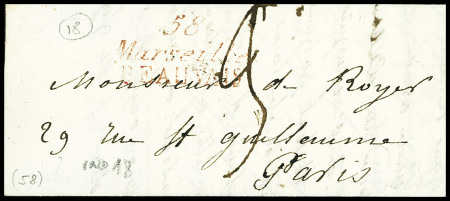 18
58
Marseille
BEAUVAIS
5
Monsieur de Royer
29 rue St guillaume
Paris
IND 18
(58)